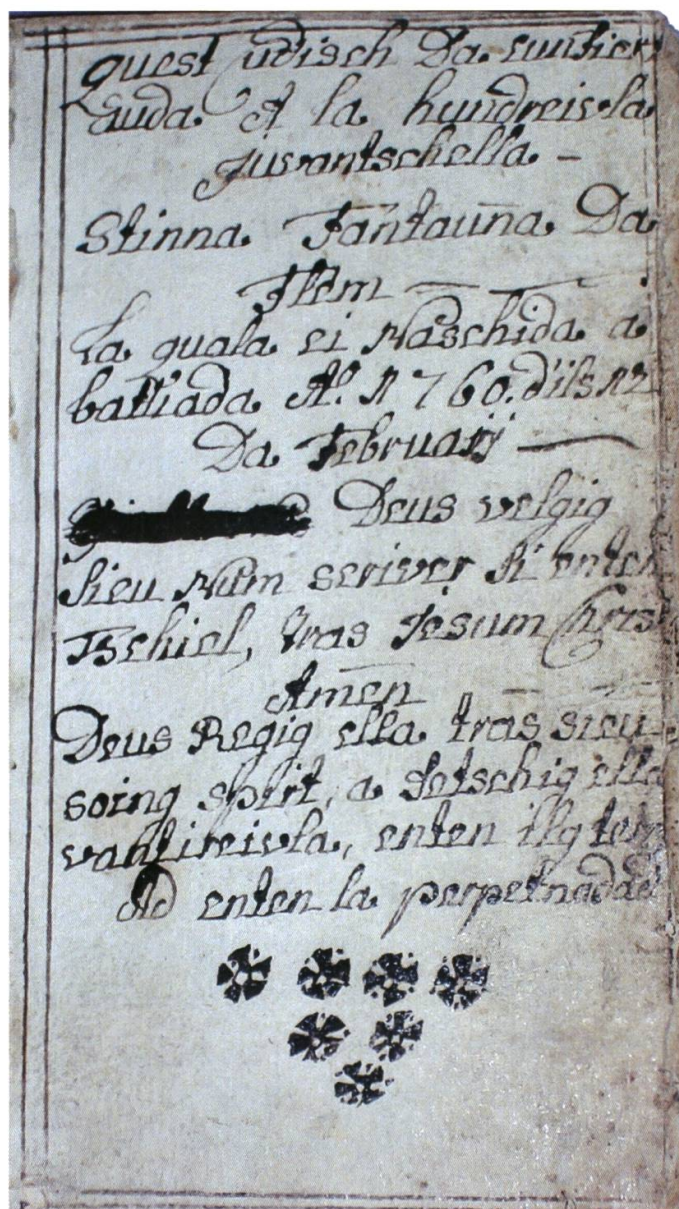 Quest Cudisch Da cuntier
Auda A la hundreivla
giuvantschella –
Stinna Fantauna Da
Flem
La quala ei Naschida a
battiada Aº. 1760. d'ils 12
Da Februarij
Deus velgig
sieu Num scriver si enten
Tschiel, tras Jesum Christ
Amen
Deus Regig ella tras sieu
soing spirt, a fetschig ella
vantireivla, enten ilg tem
Ad enten la perpetnadad